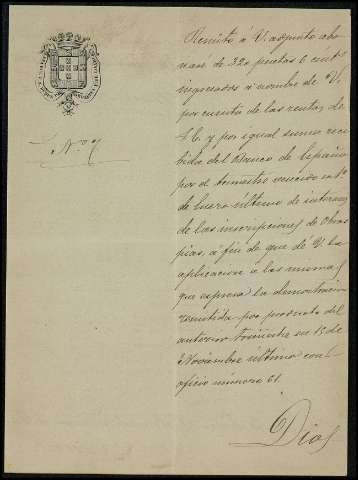 Nº 9
Remito á V. adjunto abo-
naré de 320 pesetas 6 cénts
ingresados á nombre de V.
por cuenta de las rentas de
y por igual suma reci-
bida del Banco de España
por el trimestre vencido en 1º
de Enero último de intereses
de las inscripciones de Obras
pias, á fin de que de V. la
aplicacion á las mismas
que expresa la demostracion
remitida por producto del
anterior trimestre en 15 de
Noviembre último con
oficio número 61.
Dios